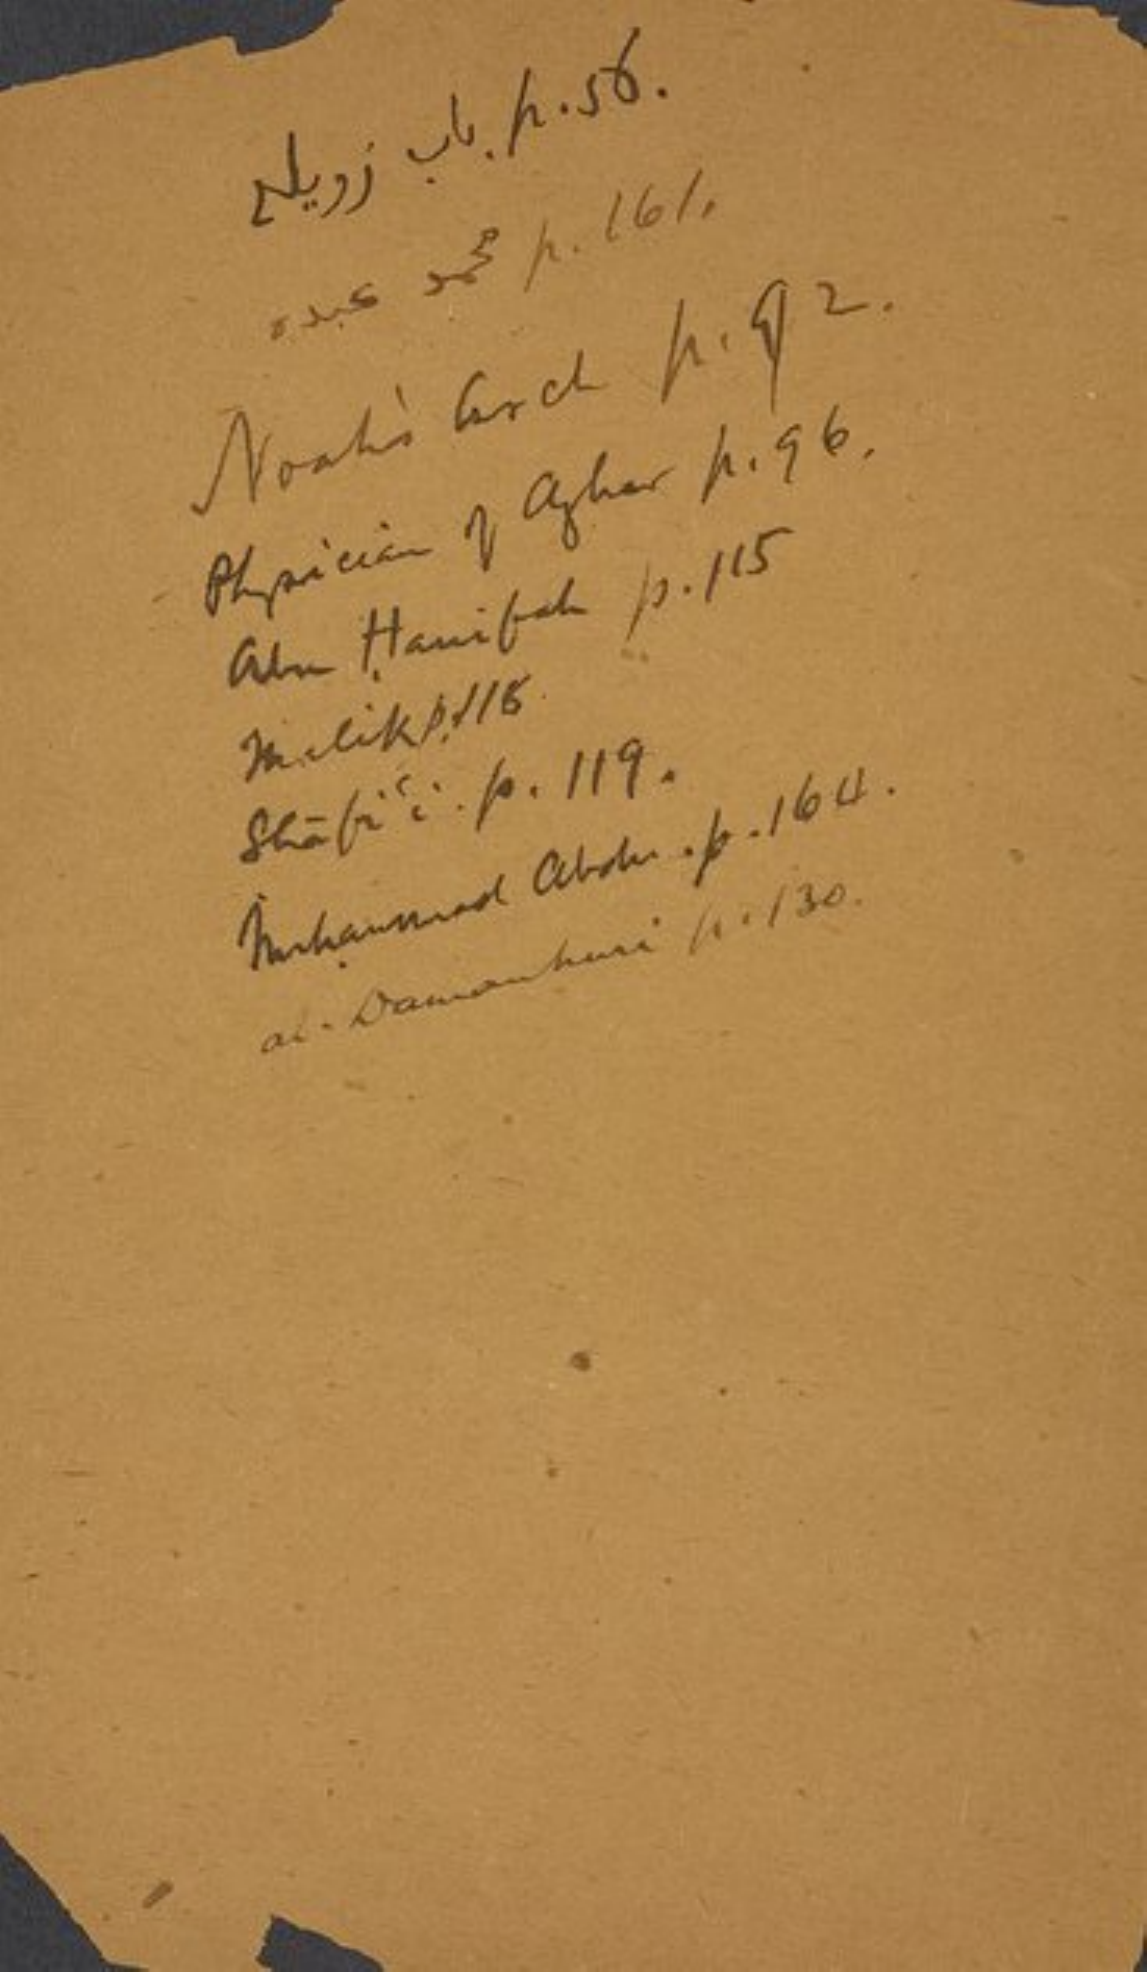 باب زويلة p. 56.
محمد عبده p. 161.
Noah's Arch p. 92.
Physician of Azhar p. 96.
Abu Ḥanifah p. 115
Malik p. 118
Shāfi'i. p. 119.
Muḥammad Abdu. p. 164.
al-Damanhuri p. 130.